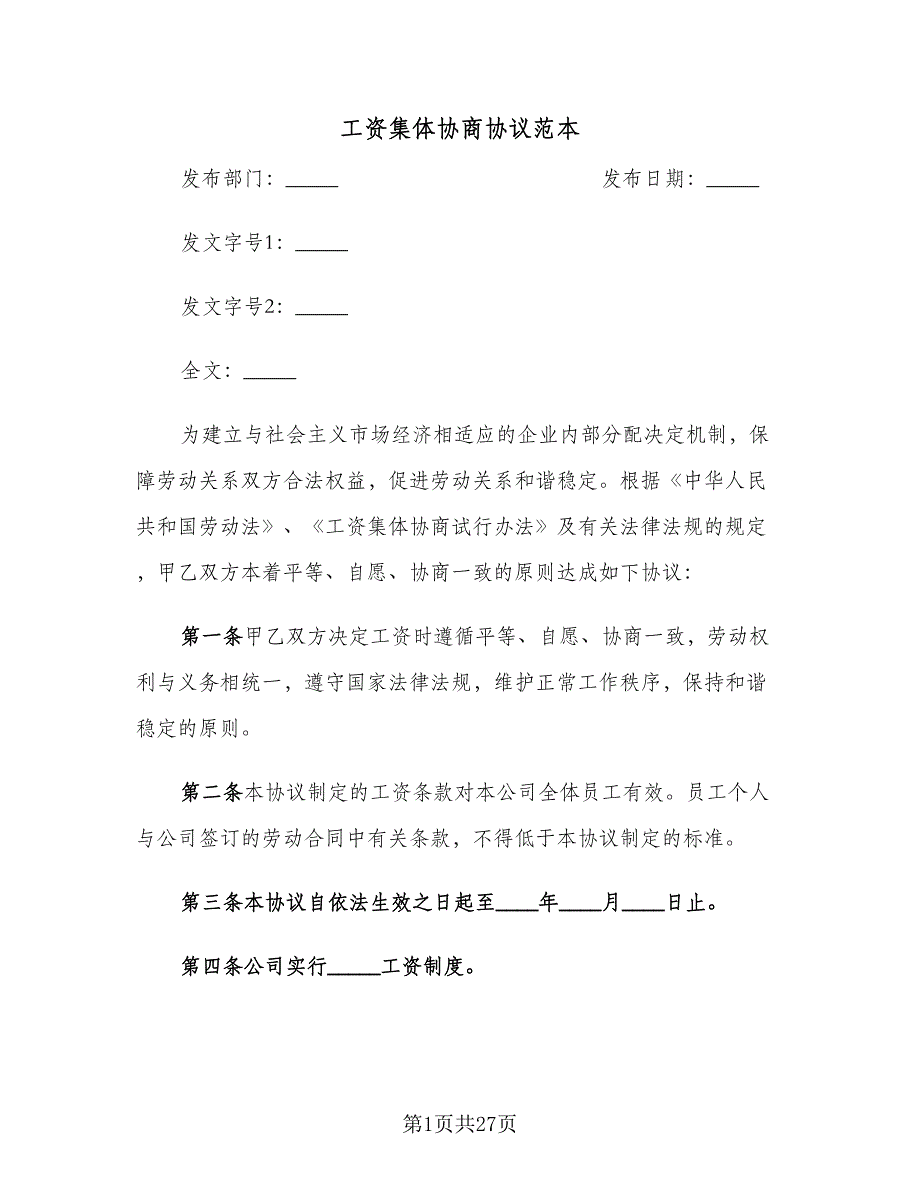 工资集体协商协议范本
发布部门：_____ 发布日期：_____
发文字号1：_____
发文字号2：_____
全文：_____
为建立与社会主义市场经济相适应的企业内部分配决定机制，保
障劳动关系双方合法权益，促进劳动关系和谐稳定。根据《中华人民
共和国劳动法》、《工资集体协商试行办法》及有关法律法规的规定
，甲乙双方本着平等、自愿、协商一致的原则达成如下协议：
第一条甲乙双方决定工资时遵循平等、自愿、协商一致，劳动权
利与义务相统一，遵守国家法律法规，维护正常工作秩序，保持和谐
稳定的原则。
第二条本协议制定的工资条款对本公司全体员工有效。员工个人
与公司签订的劳动合同中有关条款，不得低于本协议制定的标准。
第三条本协议自依法生效之日起至____年____月____日止。
第四条公司实行_____工资制度。
第1页共27页